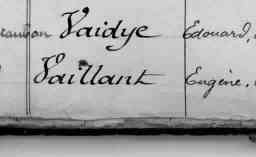 Vaidye Edouard,
Vaillant Eugène,